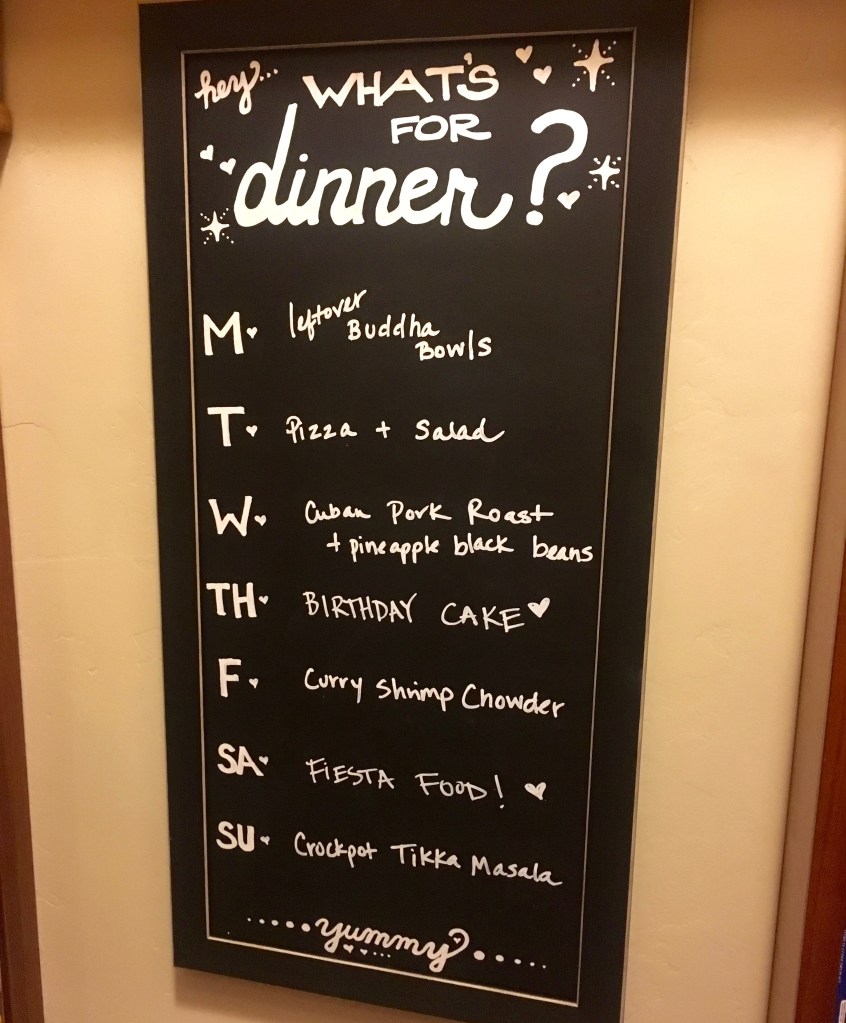 hey... WHAT'S
FOR
dinner?
M leftover
Buddha
Bowls
T Pizza + Salad
W Cuban Pork Roast
+ pineapple black beans
TH BIRTHDAY CAKE
F Curry Shrimp Chowder
SA FIESTA FOOD!
SU Crockpot Tikka Masala
.....yummy.....